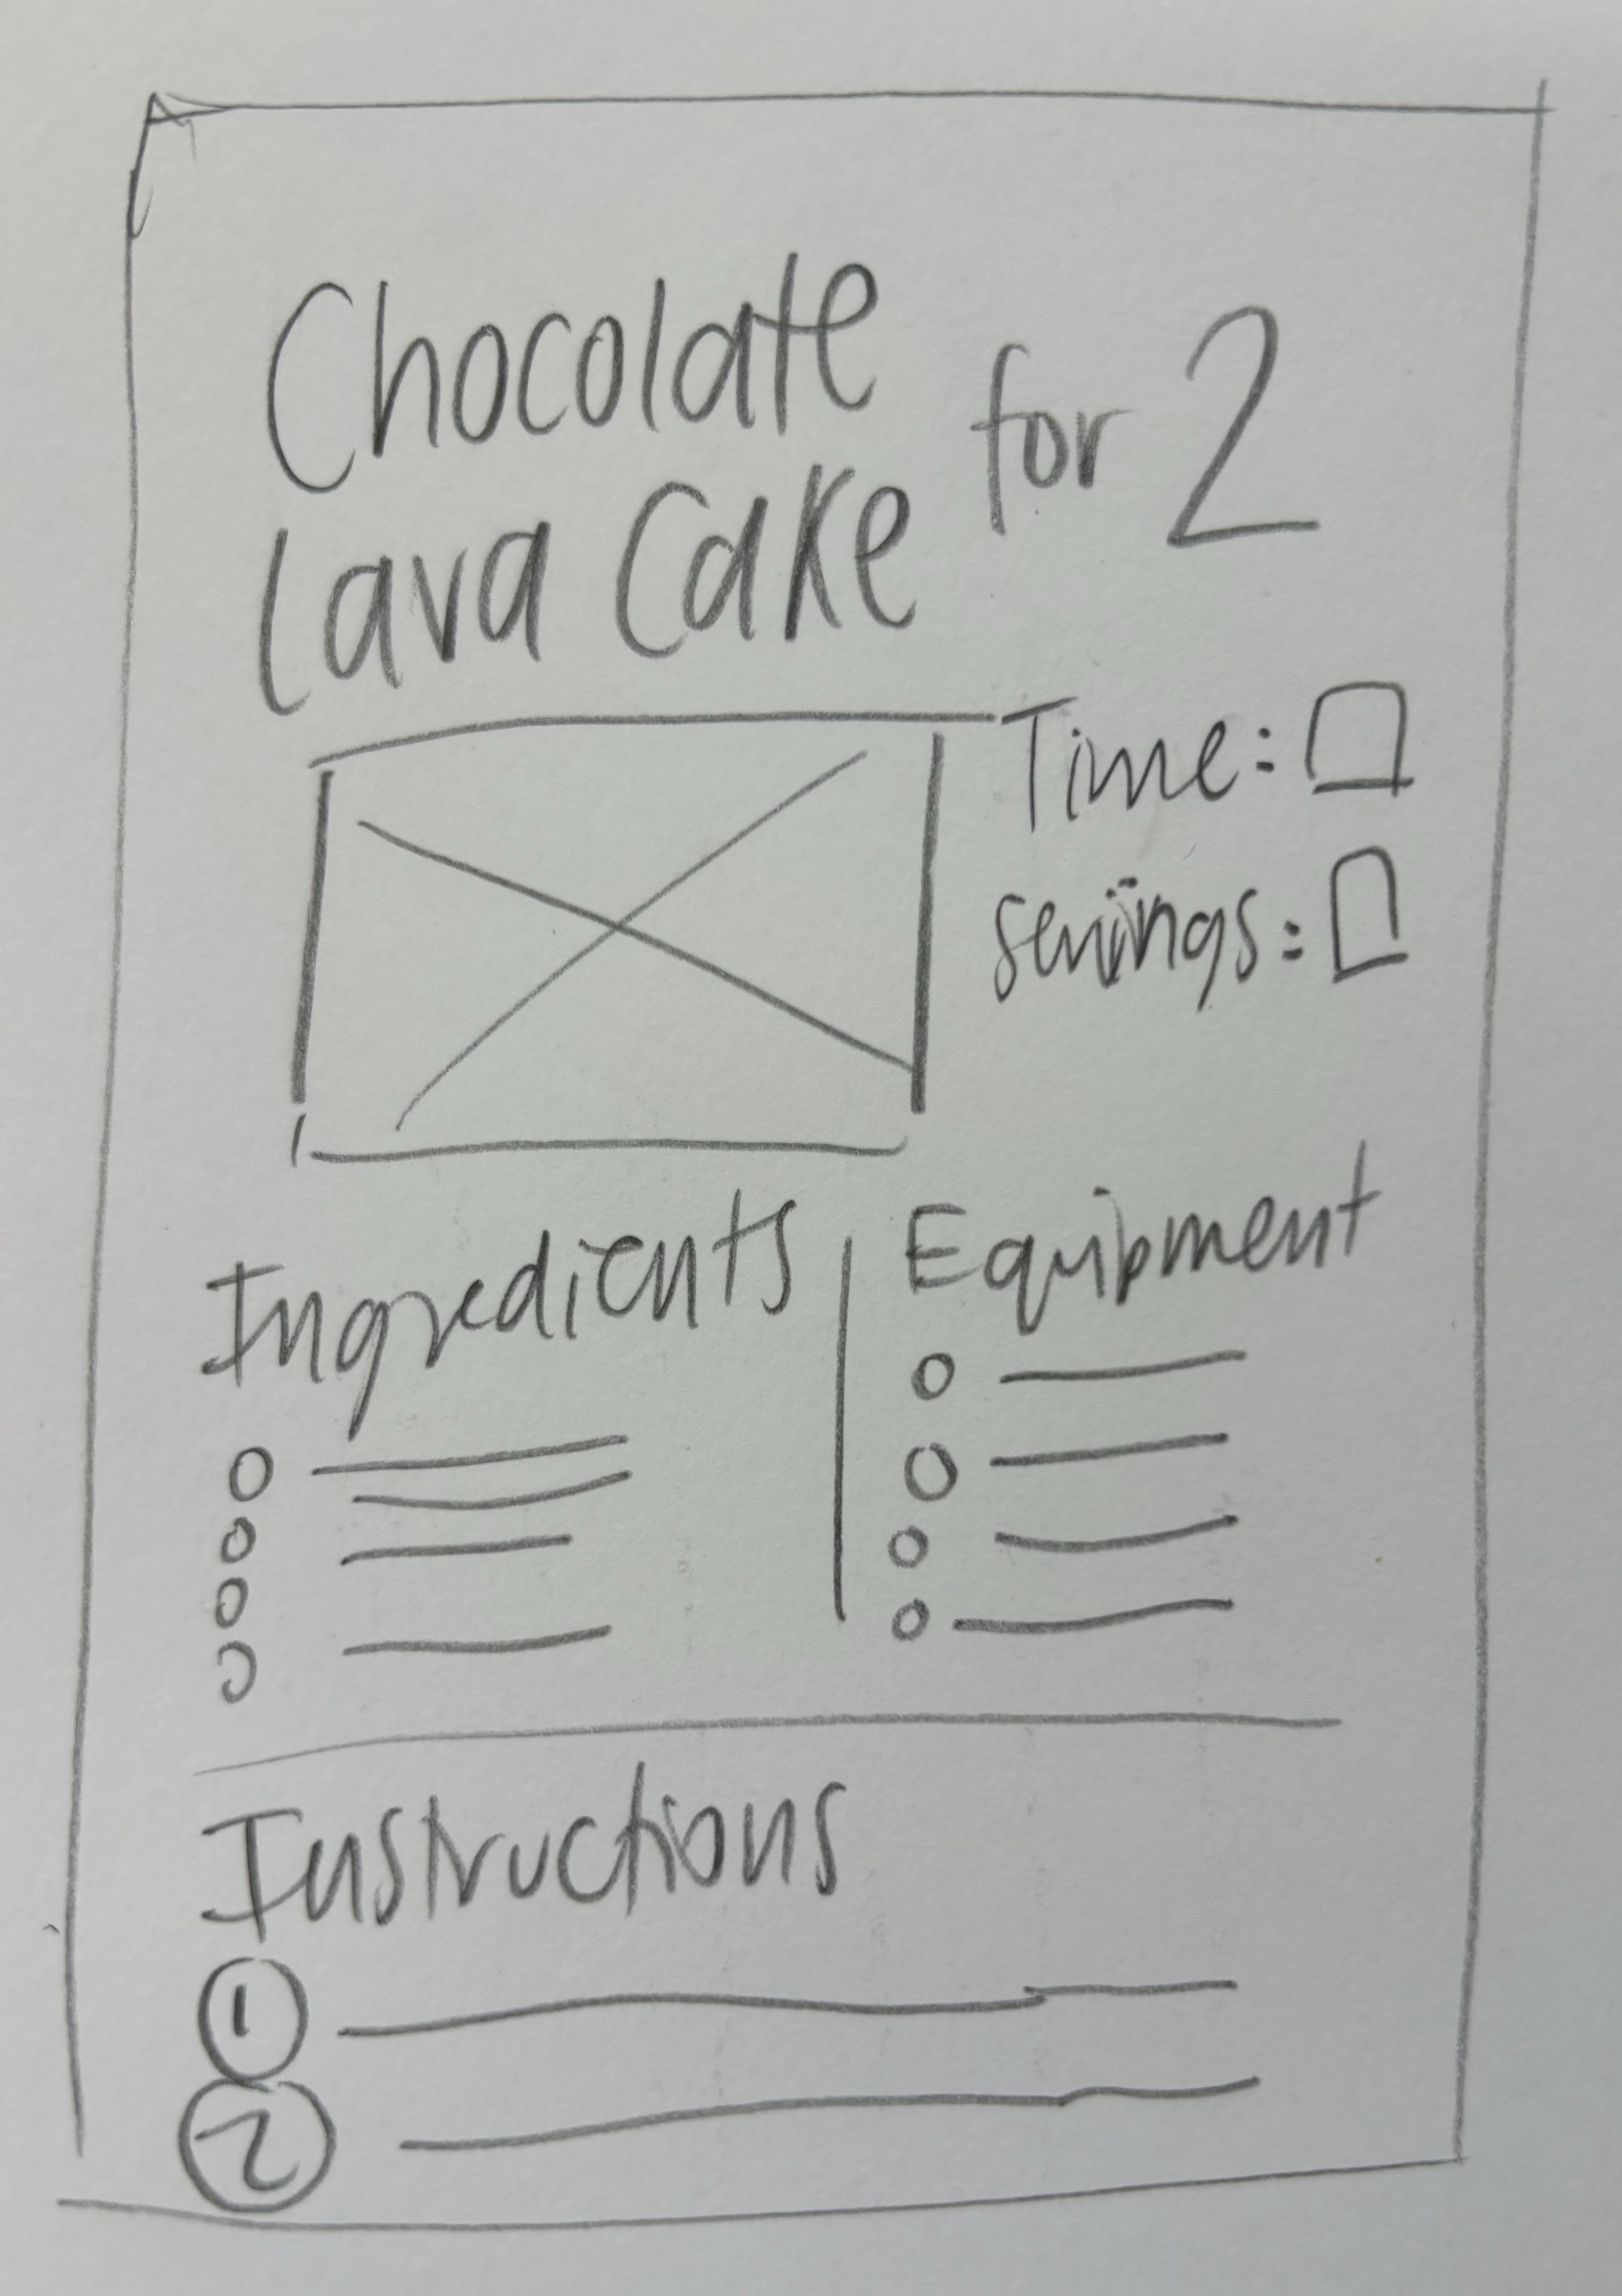 Chocolate
Lava Cake for 2
Time:
Servings:
Ingredients
Equipment
Instructions
1
2